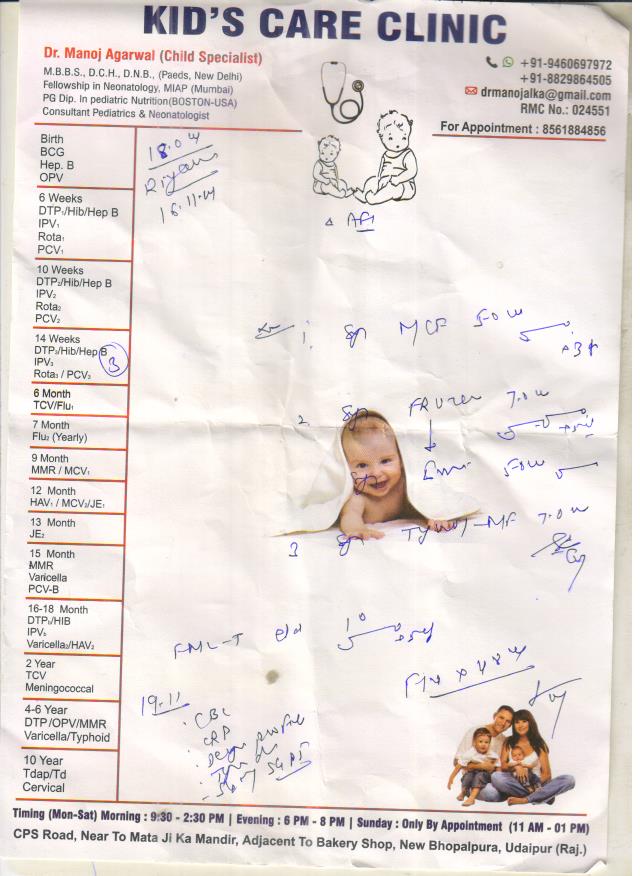 KID'S CARE CLINIC
Dr. Manoj Agarwal (Child Specialist)
M.B.B.S., D.C.H., D.N.B., (Paeds, New Delhi)
Fellowship in Neonatology, MIAP (Mumbai)
PG Dip. In pediatric Nutrition(BOSTON-USA)
Consultant Pediatrics & Neonatologist
+91-9460697972
+91-8829864505
drmanojalka@gmail.com
RMC No.: 024551
For Appointment : 8561884856
Birth
BCG
Hep. B
OPV
6 Weeks
DTP₁/Hib/Hep B
IPV₁
Rota₁
PCV₁
10 Weeks
DTP₂/Hib/Hep B
IPV₂
Rota₂
PCV₂
14 Weeks
DTP₃/Hib/Hep B
IPV₃
Rota₃ / PCV₃
3
6 Month
TCV/Flu₁
7 Month
Flu₂ (Yearly)
9 Month
MMR / MCV₁
12 Month
HAV₁ / MCV₂/JE₁
13 Month
JE₂
15 Month
MMR
Varicella
PCV-B
16-18 Month
DTP₁/HIB
IPV₅
Varicella₂/HAV₂
2 Year
TCV
Meningococcal
4-6 Year
DTP/OPV/MMR
Varicella/Typhoid
10 Year
Tdap/Td
Cervical
18.0
Riyan
16.11
1. Syp MCF 5.0
2. Syp 7.0
Syp 5.0
3 Syp 7.0
FML-T e/d
19.11
CBC
CRP
SGPT
Timing (Mon-Sat) Morning : 9:30 - 2:30 PM | Evening : 6 PM - 8 PM | Sunday : Only By Appointment (11 AM - 01 PM)
CPS Road, Near To Mata Ji Ka Mandir, Adjacent To Bakery Shop, New Bhopalpura, Udaipur (Raj.)